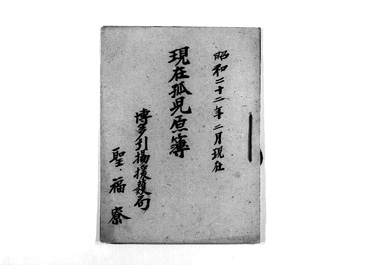 昭和二十二年二月現在
現在孤児原簿
博多引揚援護局
聖・福寮